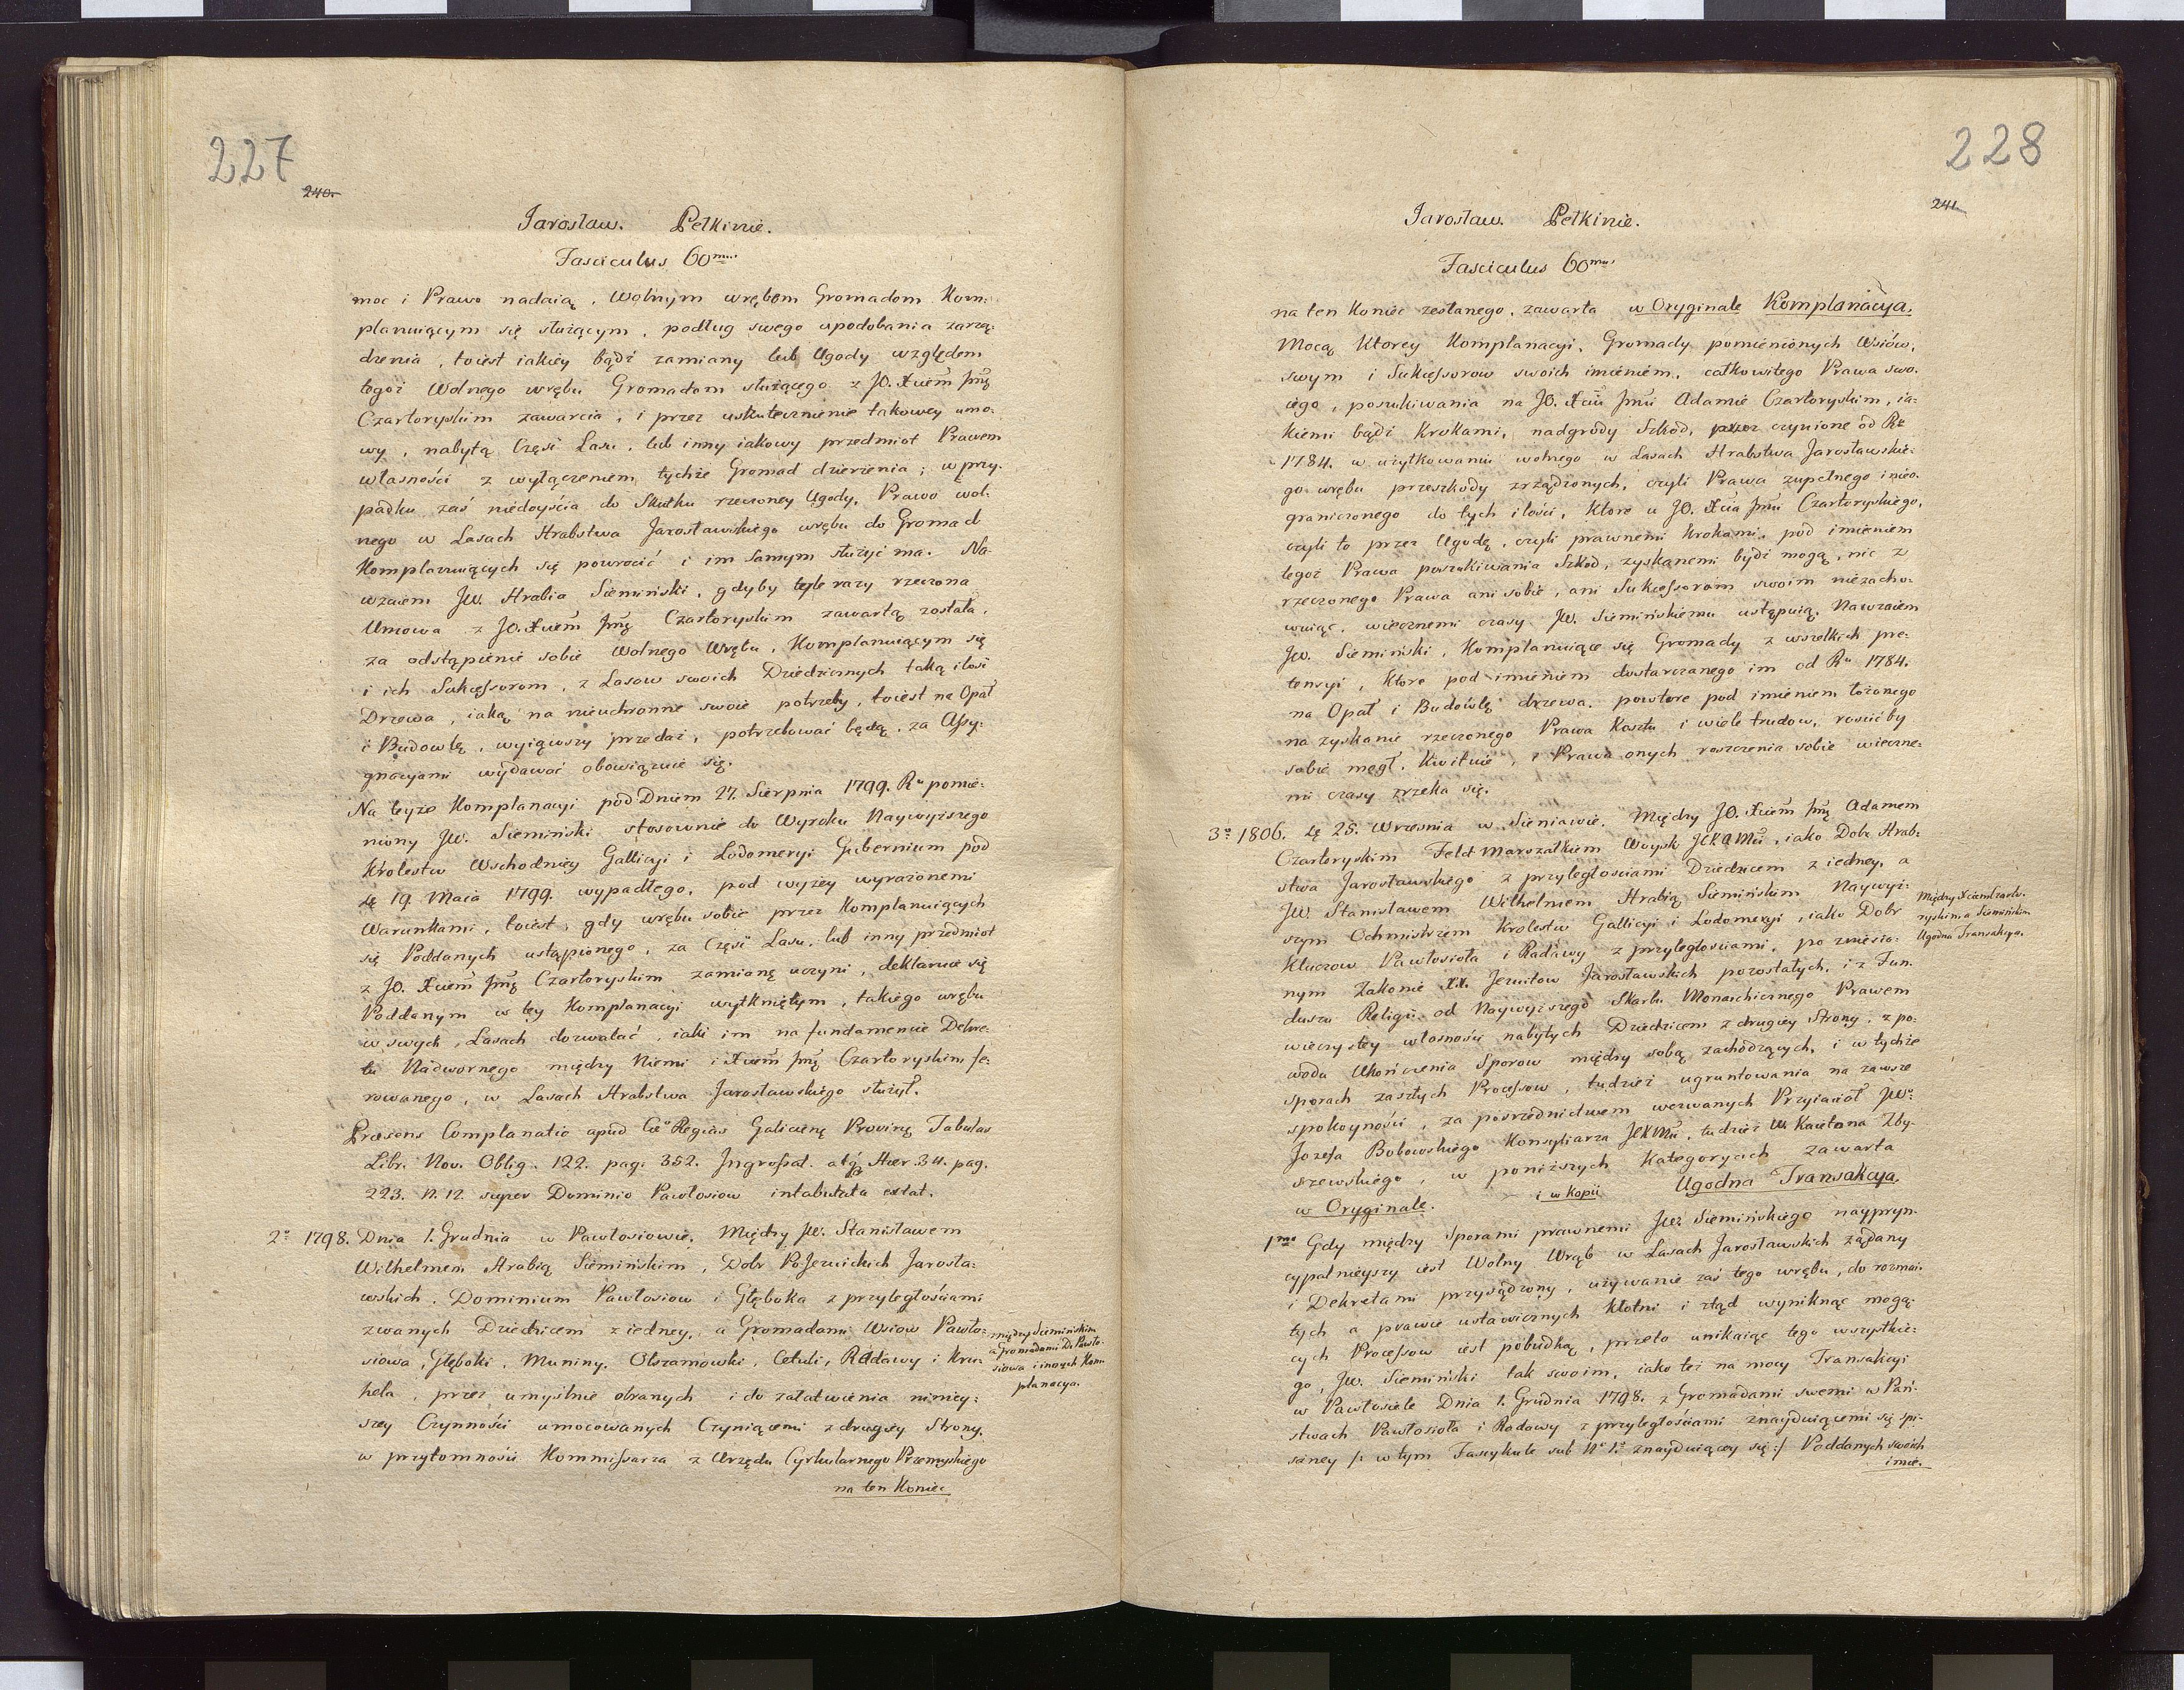 227
240.
Jarosław. Pełkinie.
Fasciculus 60mus
moc i Prawo nadaią, Wolnym wrębem Gromadom Kom:
planuiącym się służącym, podług swego upodobania zarzą:
dzenia, toiest iakiey bądź zamiany lub Ugody względem
tegoż Wolnego wrębu Gromadom służącego z JO. Xciem Jmę
Czartoryskim zawarcia, i przez uskutecznienie takowey umo:
wy, nabytą Część Lasu, lub inny iakowy przedmiot Prawem
własności z wyłączeniem tychże Gromad dzierżenia; w przy:
padku zaś niedoyścia do Skutku rzeczoney Ugody, Prawo wol:
nego w Lasach Hrabstwa Jarosławskiego wrębu do Gromad
Komplanuiących się powrocić i im samym służyć ma. Na:
wzaiem JW. Hrabia Siemiński, gdyby tyle razy rzeczona
Umowa z JO. Xciem Jmę Czartoryskim zawartą została,
za odstąpienie sobie Wolnego Wrębu, Komplanuiącym się
i ich Sukcessorom, z Lasow swoich Dziedzicznych taką ilość
Drzewa, iaką na nieuchronne swoie potrzeby, toiest na Opał
i Budowlę, wyiąwszy przedaż, potrzebować będą, za Assy:
gnacyami wydawać obowiązuie się.
Na teyże Komplanacyi pod Dniem 27. Sierpnia 1799. Ru pomie:
niony JW. Siemiński stosownie do Wyroku Naywyższego
Krolestw Wschodniey Gallicyi i Lodomeryi Gubernium pod
19. Maia 1799. wypadłego, pod wyżey wyrażonemi
Warunkami, toiest, gdy wrębu sobie przez Komplanuiących
się Poddanych ustąpionego, za Część Lasu, lub inny przedmiot
z JO. Xciem Jmę Czartoryskim zamianę uczyni, deklaruie się
Poddanym w tey Komplanacyi wytkniętym, takiego wrębu
w swych Lasach dozwalać, iaki im na fundamencie Dekre:
tu Nadwornego między Niemi i Xciem Jmę Czartoryskim fe:
rowanego, w Lasach Hrabstwa Jarosławskiego służył.
Præsens Complanatio apud Regias Galicienę Provinę Tabulas
Libr. Nov. Oblig. 122. pag. 352. Ingrossat. atq Haer. 34. pag.
223. n. 12 super Dominio Pawłosiow intabulata extat.
2o 1798. Dnia 1. Grudnia w Pawłosiowie. Między JW. Stanisławem
Wilhelmem Hrabią Siemińskim, Dobr PoJezuickich Jarosła:
wskich, Dominium Pawłosiow i Głęboka z przyległościami
zwanych Dziedzicem z iedney, a Gromadami Wsiow Pawło:
siowa, Głęboki, Muniny, Olszanowski, Cetuli, Radawy i Kru
hela, przez umyslnie obranych i do załatwienia niniey:
szey Czynności umocowanych Czyniącemi z drugiey Strony,
w przytomności Kommissarza z Urzędu Cyrkularnego Przemyskiego
na ten Koniec
między Siemińskim
a Gromadami Do Pawło:
siowa i innych Kom
planacya.
228
241.
Jarosław. Pełkinie.
Fasciculus 60mus
na ten Koniec zesłanego, zawarta w Oryginale Komplanacya.
Mocą Ktorey Komplanacyi, Gromady pomienionych Wsiów,
swym i Sukcessorow swoich imieniem, całkowitego Prawa swo:
iego, poszukiwania na JO. Xciu Jmci Adamie Czartoryskim, ia:
kiemi bądź Krokami, nadgrody Szkod, przez czynione od Ru
1784. w użytkowaniu wolnego w Lasach Hrabstwa Jarosławskie:
go wrębu przeszkody zrządzonych, czyli Prawa zupełnego i nieo:
graniczonego do tych ilości, Ktore u JO. Xcia Jmci Czartoryskiego,
czyli to przez Ugodę, czyli prawnemi Krokami, pod imieniem
tegoż Prawa poszukiwania Szkod, zyskanemi bydź mogą, nic z
rzeczonego Prawa ani sobie, ani Sukcessorom swoim niezacho:
wuiąc, wiecznemi czasy JW. Siemińskiemu ustępuią. Nawzaiem
JW. Siemiński, Komplanuiące się Gromady z wszelkich pre:
tensyi, Ktore pod imieniem dostarczanego im od Ru 1784.
na Opał i Budowlę drzewa, powtore pod imieniem łożonego
na zyskanie rzeczonego Prawa Kosztu i wiele trudow, rościć by
sobie mógł, Kwituie, i Prawa onych roszczenia sobie wieczne:
mi czasy zrzeka się.
3o 1806. 25. Wrzesnia w Sieniawie. Między JO. Xciem Jmę Adamem
Czartoryskim Feld Marszałkiem Woysk JCKAMci, iako Dobr Hrab:
stwa Jarosławskiego z przyległosciami Dziedzicem z iedney, a
JW. Stanisławem Wilhelmem Hrabią Siemińskim Naywyż:
szym Ochmistrzem Krolestw Gallicyi i Lodomeryi, iako Dobr
Kluczow Pawłosioła i Radawy z przyległosciami, po zniesio:
nym Zakonie XX. Jezuitow Jarosławskich pozostałych, i z Fun:
duszu Religii od Naywyższego Skarbu Monarchicznego Prawem
wieczystey własności nabytych Dziedzicem z drugiey Strony, z po:
wodu Ukończenia Sporow między sobą zachodzących, i w tychże
sporach zaszłych Processow, tudzież ugruntowania na zawsze
spokoyności, za posrzednictwem wezwanych Przyiaciół JWo
Jozefa Bobowskiego Konsyliarza JCKMci, tudzież W. Kaietana Zby:
szewskiego, w poniższych Kategoryach zawarta
w Oryginale. i w Kopii Ugodna Transakcya.
1mo Gdy między Sporami prawnemi JWo Siemińskiego naypryn:
cypalnieyszy iest Wolny Wrąb w Lasach Jarosławskich żądany
i Dekretami przysądzony, używanie zaś tego wrębu, do rozmai:
tych a prawie ustawicznych kłotni i ztąd wyniknąc mogą:
cych Processow iest pobudką, przeto unikaiąc tego wszystkie:
go, JW. Siemiński tak swoim, iako też na mocy Transakcyi
w Pawłosiele Dnia 1. Grudnia 1798. z Gromadami swemi w Pań:
stwach Pawłosioła i Radawy z przyległościami znayduiącemi się spi:
saney /: w tym Fascykule sub No 1o znayduiącey się :/ Poddanych swoich
imie.
Między Xciem Czarto:
ryskim a Siemińskim
Ugodna Transakcya.